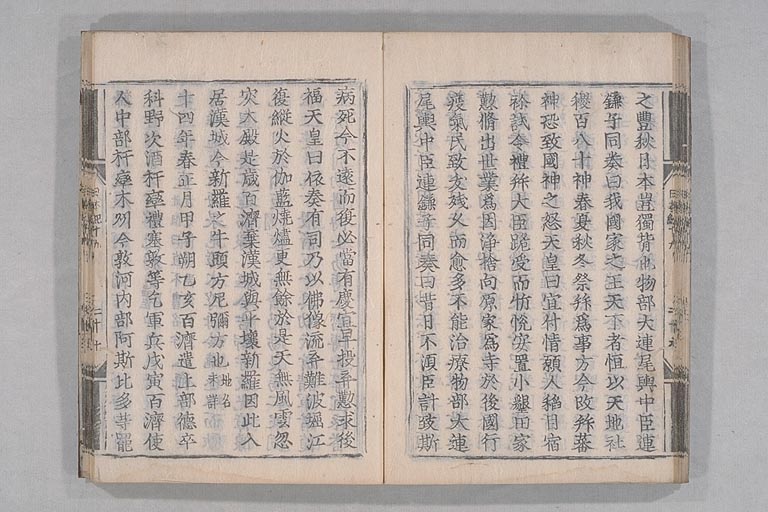 之豐秋日本豈獨背也物部大連尾輿中臣連
鎌子同奏曰我國家之王天下者恒以天地社
稷百八十神春夏秋冬祭拜爲事方今改拜蕃
神恐致國神之怒天皇曰宜付情願人稻目宿
祢試令禮拜大臣跪受而忻悅安置小墾田家
懃脩出世業爲因淨捨向原家爲寺於後國行
疫氣民致夭殘久而愈多不能治療物部大連
尾輿中臣連鎌子同奏曰昔日不須臣計致斯
病死今不遠而復必當有慶宜早投弃懃求後
福天皇曰依奏有司乃以佛像流弃難波堀江
復縱火於伽藍燒燼更無餘於是天無風雲忽
灾大殿是歲百濟棄漢城與平壤新羅因此入
居漢城今新羅之牛頭方尼彌方也地名未詳
十四年春正月甲子朔乙亥百濟遣上部德卒
科野次酒杆率禮塞敦等乞軍兵戊寅百濟使
人中部杆率木刕今敦河內部阿斯比多等罷